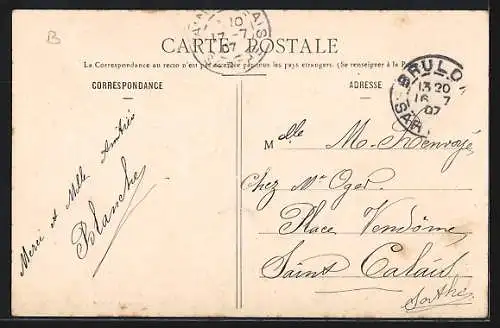 B
CARTE POSTALE
La Correspondance au recto n'est pas acceptée par tous les pays étrangers. (Se renseigner à la Poste)
CORRESPONDANCE
ADRESSE
10
17 - 7
07
BRULO
13 20
16 7
07
SAR
Merci et Mille Amitiés
Blanche
Mlle M.
Chez Mr Oger
Place Vendôme
Saint Calais
Sarthe